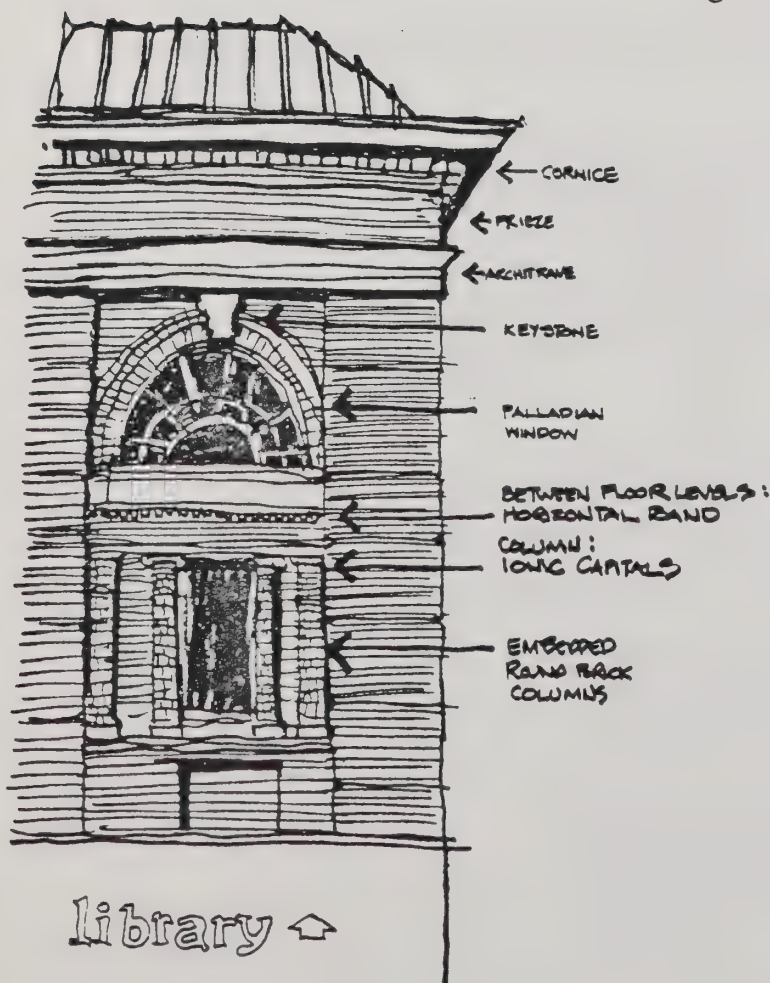 CORNICE
FRIEZE
ARCHITRAVE
KEYSTONE
PALLADIAN
WINDOW
BETWEEN FLOOR LEVELS:
HORIZONTAL BAND
COLUMN:
IONIC CAPITALS
EMBEDDED
ROUND BRICK
COLUMNS
library